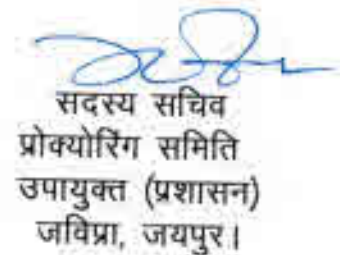 सदस्य सचिव
प्रोक्योरिंग समिति
उपायुक्त (प्रशासन)
जविप्रा, जयपुर।